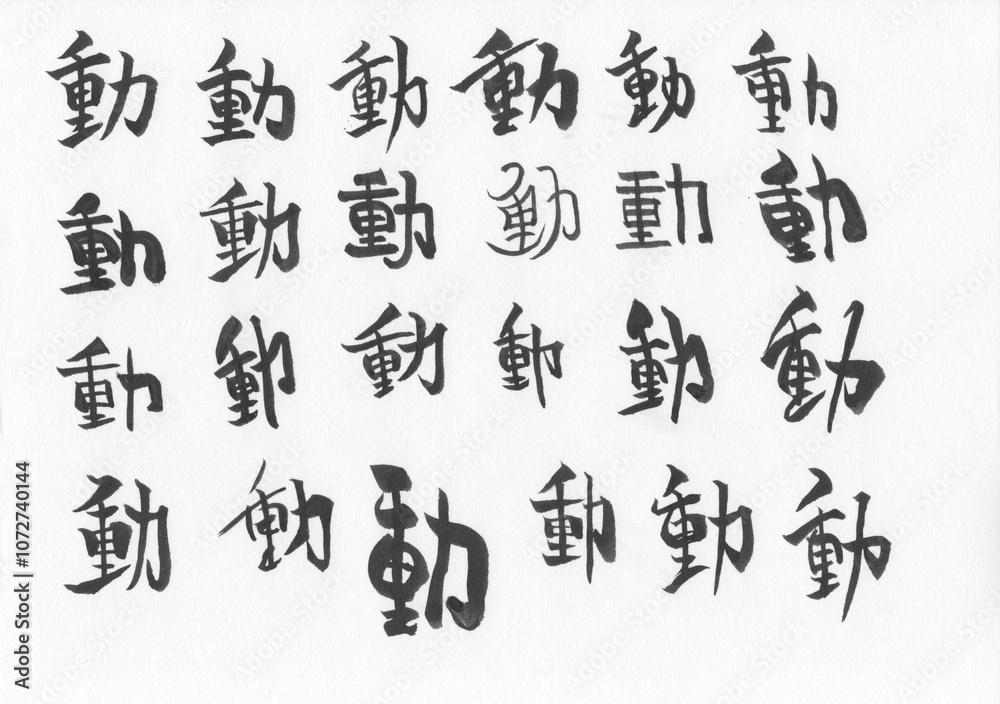 動 動 動 動 動 動
動 動 動 動 動 動
動 動 動 動 動 動
動 動 動 動 動 動
Adobe Stock | #1072740144